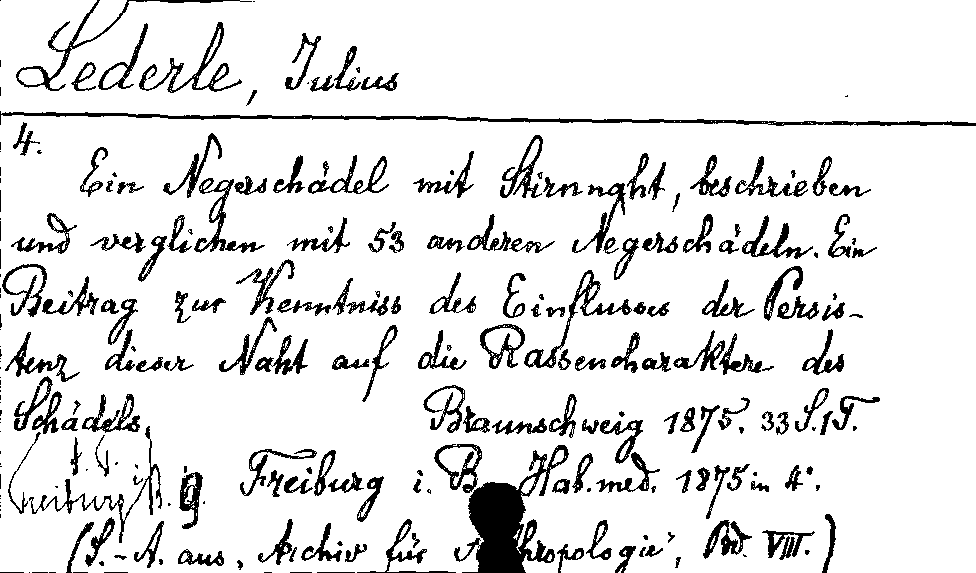 Lederle, Julius
4.
Ein Negerschädel mit Stirnnaht, beschrieben
und verglichen mit 53 anderen Negerschädeln. Ein
Beitrag zur Kenntniss des Einflusses der Persis-
tenz dieser Naht auf die Rassencharaktere des
Schädels.
Braunschweig 1875. 33 S. 1 T.
Freiburg i. B. Hab. med. 1875 in 4°.
Freiburg i/B. 9
(S.-A. aus, Archiv für Anthropologie", Bd. VIII.)